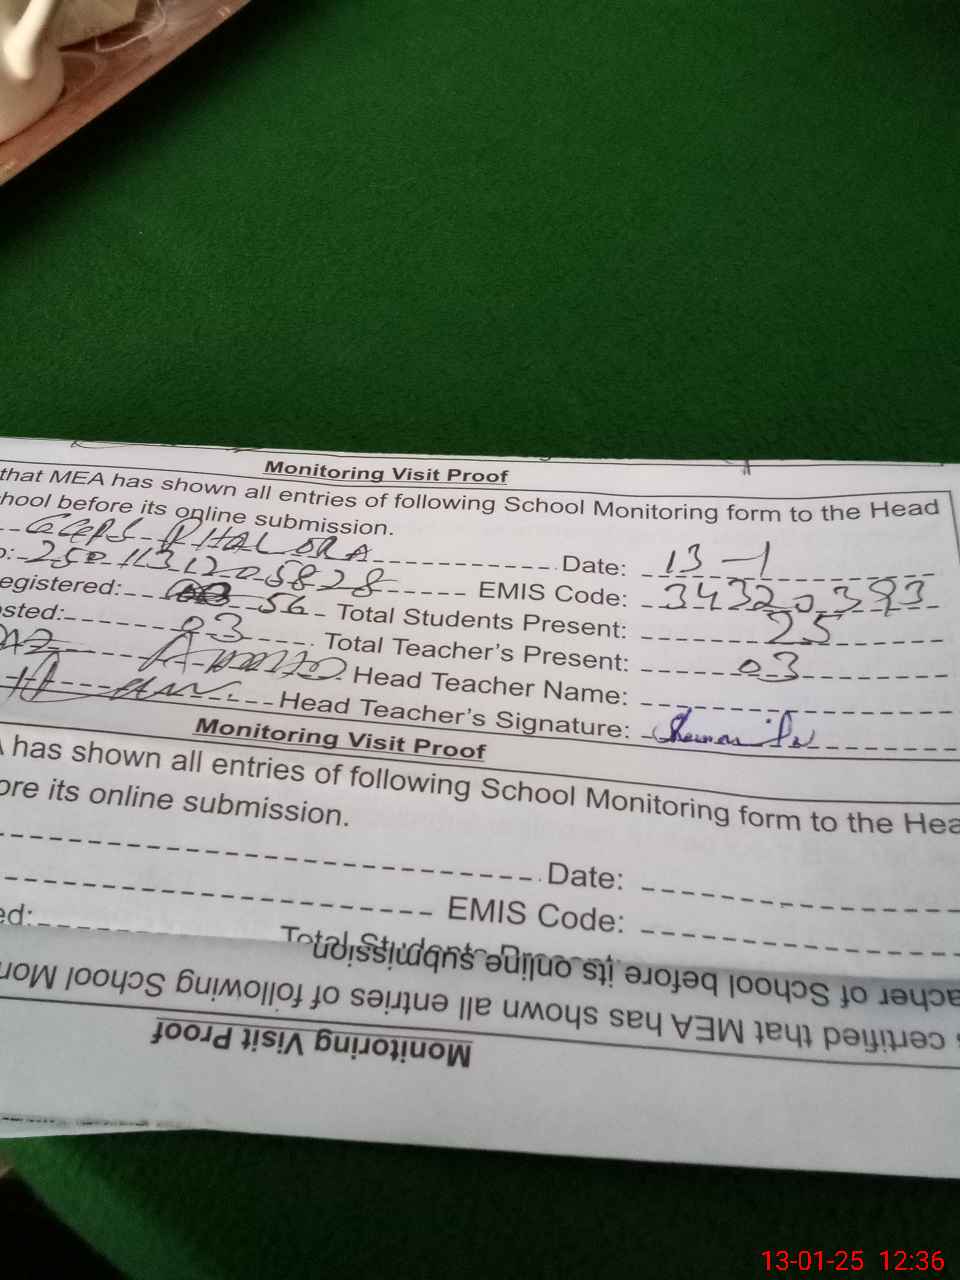 Monitoring Visit Proof
that MEA has shown all entries of following School Monitoring form to the Head
hool before its online submission.
PHALORA Date: 13-1
o: 250113120-5828 EMIS Code: 34320393
egistered: 56 Total Students Present: 25
sted: 03 Total Teacher's Present: 03
Head Teacher Name:
Head Teacher's Signature:
Monitoring Visit Proof
A has shown all entries of following School Monitoring form to the Hea
ore its online submission.
Date:
EMIS Code:
ed: Total Students Present:
acher of School before its online submission
s certified that MEA has shown all entries of following School Mon
Monitoring Visit Proof
13-01-25 12:36